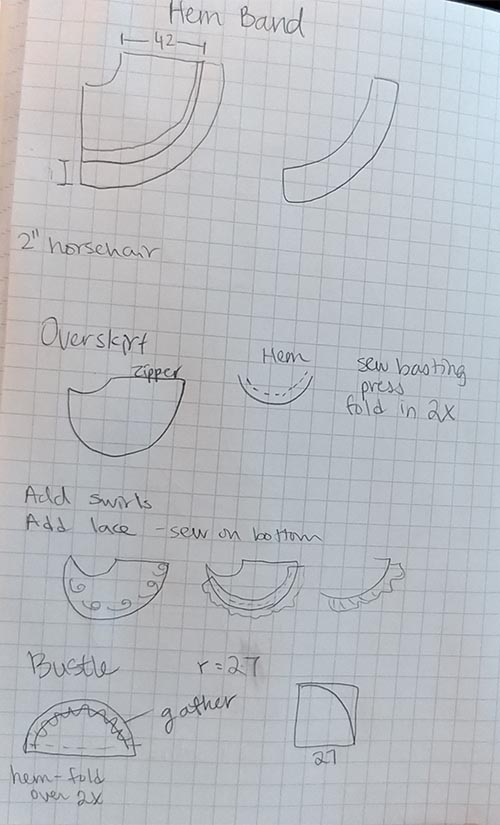 Hem Band
42
2" horsehair
Overskirt
zipper
Hem
sew basting
press
fold in 2x
Add swirls
Add lace - sew on bottom
Bustle
r=27
gather
27
hem-fold
over 2x